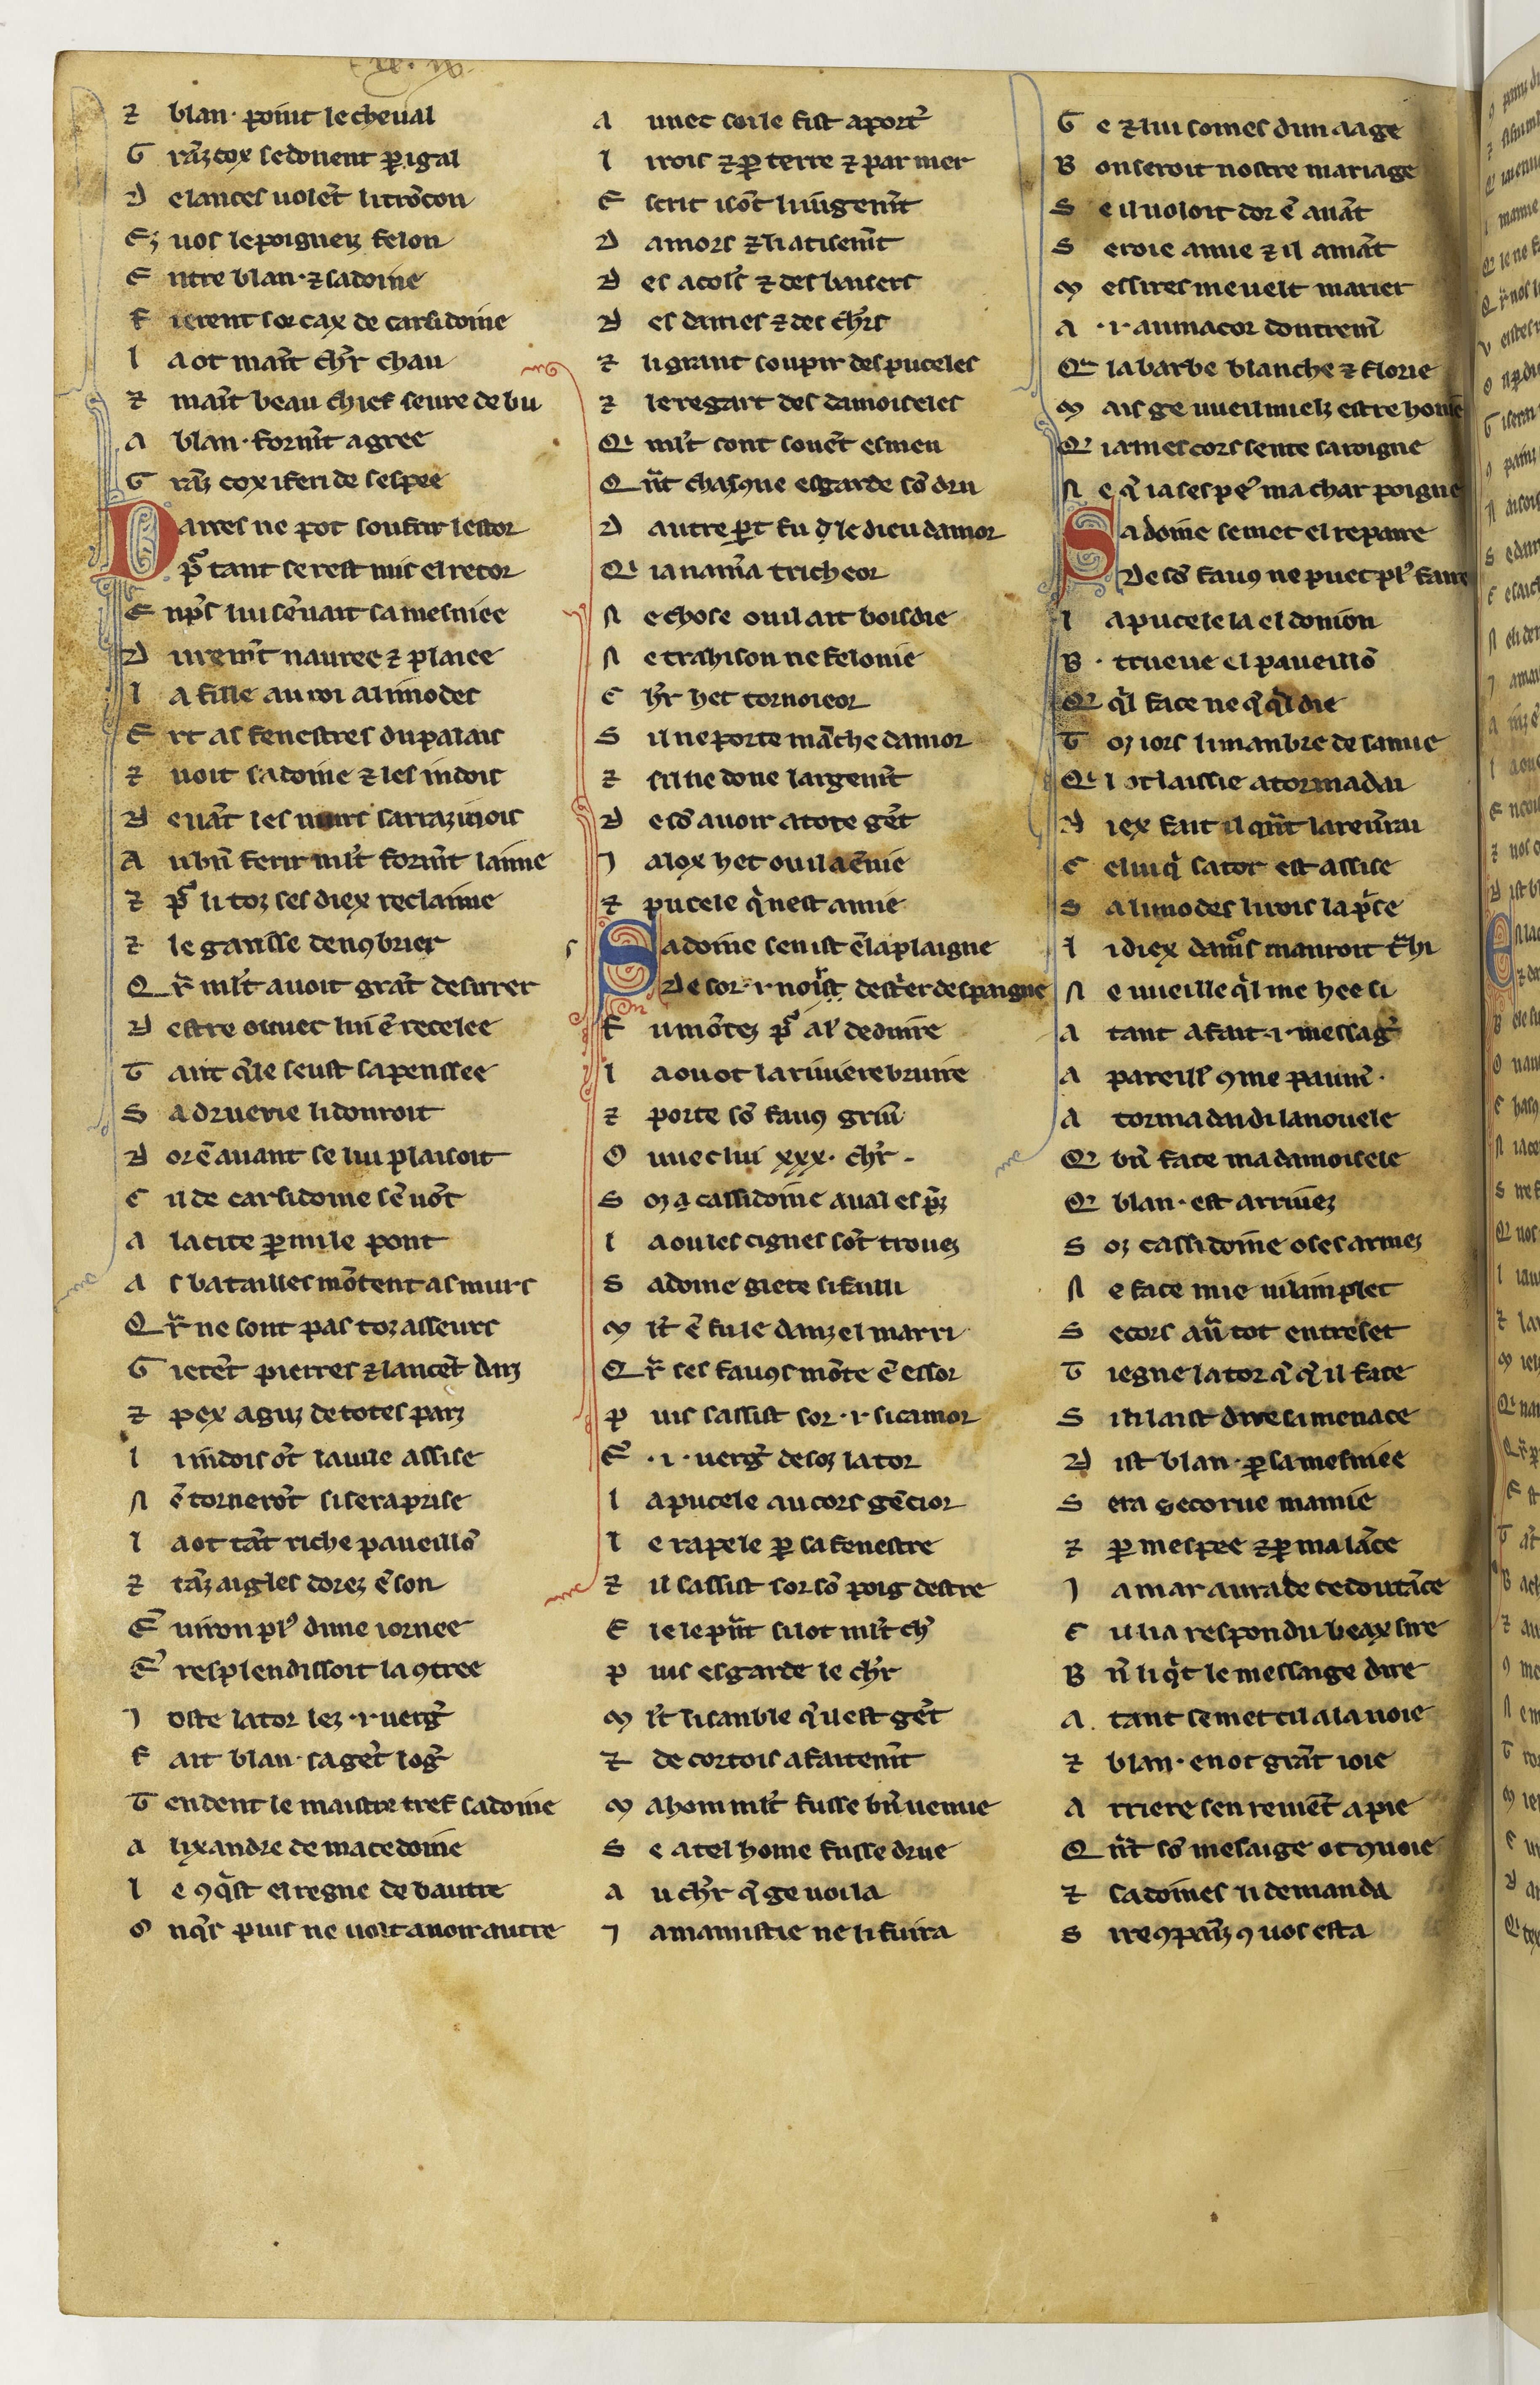 ⁊ blan· point le cheual
G rãz cox se donent p̱ igal
D e lances uolẽt li trõcon
E z uos le poigneiz felon
E ntre blan· ⁊ sadoine
F ierent sor cax de cassidoine
l a ot maĩt ch̃r chau
⁊ maĩt beau chief seure de bu
A blan· form̃t agree
G rãz cox i feri de sespee
D aires ne pot soufrir lestor
p̃ tant se rest mis el retor
E np̃s lui sẽ uait sa mesniee
D urem̃t nauree ⁊ plaiee
l a fille au roi alimodes
E rt as fenestres du palais
⁊ uoit sadoine ⁊ les indois
D euãt les murs sarrazinois
A u bñ ferir ml̃t form̃t laime
⁊ p̃ li toz ses diex reclaime
⁊ le ganise de nꝯbrier
Q r̃ ml̃t auoit grãt desirrer
D estre ouuec lui ẽ recelee
T ant q̃le seust sa pensee
S a druerie li donroit
D or ẽ auant se lui plaisoit
C il de carsidoine sẽ uõt
A la cite p̱ mi le pont
A s batailles mõtent as murs
Q r̃ ne sont pas toz asseurs
G ietẽt pierres ⁊ lancẽt darz
⁊ pex aguz de totes parz
l i indois õt la uile assise
N ẽ tornerõt si sera prise
l a ot tãt riche paueillõ
⁊ tãz aigles dorez ẽ son
E ̃ uiron pl' dune iornee
E ̃ resplendissoit la ꝯtree
J oste la tor lez ·i· uerg̃
F ait blan· sa gẽt log̃
T endent le maistre tref sadoine
A lixandre de macedoine
l e ꝯq̃st el regne de bautre
O nq̃s puis ne uolt auoir autre
A uuec soi le fist aport̃
l irois ⁊ p̱ terre ⁊ par mer
E scrit i sõt li iugem̃t
D amors ⁊ li atisem̃t
D es acols ⁊ des baisers
D es dames ⁊ des ch̃rs
⁊ li grant soupir des puceles
⁊ le regart des damoiseles
Q i ml̃t sont souẽt esmeu
Q ñt chasque esgarde sõ dru
D autre p̱t fu q̃ le dieu damor
Q i ia nam̃a tricheor
N e chose ou il ait boisdie
N e trahison ne felonie
C h̃r het tornoieor
S il ne porte mãche damor
⁊ sil ne done largem̃t
D e sõ auoir a tote gẽt
J alox het ou il a ẽuie
⁊ pucele q̃ nest amie
S adoine sen ist ẽ la plaigne
De sor ·i· noir̃ destr̃er despaigne
F u mõtez p̃ al̃ deduire
l a ou ot la riuiere bruire
⁊ porte sõ fauꝯ gruĩ
O uuec lui xxx· ch̃r·
S oz a cassidoine aual es p̃z
l a ou les cignes sõt trouez
S adoine giete si failli
M l̃t ẽ fu le danzel marri
Q r̃ ses fauꝯs mõte ẽ essor
P uis sassist sor ·i· sicamor
E ̃ ·i· uerg̃ desoz la tor
l a pucele au cors gẽcior
l e rapele p̱ sa fenestre
⁊ il sassist sor sõ poig destre
E le le pr̃it si lot ml̃t ch̃
P uis esgarde le ch̃r
M l̃t li sanble q̃ il est gẽt
⁊ de cortois afaitem̃t
M ahom ml̃t fusse bñ uenue
S e a tel home fusse drue
A u ch̃r q̃ ge uoi la
J a mamistie ne li fuira
G e ⁊ lui somes dun aage
B on seroit nostre mariage
S e il uoloit dor ẽ auãt
S eroie amie ⁊ il amãt
M es sires me uelt marier
A ·i· aumacor doutrem̃
Q i la barbe blanche ⁊ florie
M ais ge uueil mielz estre honie
Q ia mes cors sente sa roigne
N e q̃ ia ses pe' ma char poigne
S adoine se met el repaire
De sõ fauꝯ ne puet pl' faire
l a pucele la el donion
B · trueue el paueillõ
Q q̃l face ne q̃ q̃l die
T oz iors li manbre de samie
Q il ot laissie a tormadai
D iex fait il q̃nt la reuerrai
C elui q̃ sa tor est assise
S alimodes li rois la p̃se
l i diex damõs mauroit t̃hi
N e uueille q̃l me hee si
A tant a fait ·i· messag̃
A pareill' ꝯme paum̃·
A tormadai di la nouele
Q bñ face ma damoisele
Q blan· est arriuez
S oz cassidoine o ses armez
N e face mie uilain plet
S ecors aũ tot entreset
T iegne la tor q̃ q̃ il face
S il i laist dire si menace
D ist blan· p̱ sa mesniee
S era secorue mamie
⁊ p̱ mespee ⁊ p̱ ma lãce
J a mar aura de ce doutãce
C il li a respondu beax sire
B ñ li q̃t le messaige dire
A tant se met cil a la uoie
⁊ blan· en ot grãt ioie
A rriere sen reuiẽt a pie
Q ñt sõ mesaige ot ꝯuoie
⁊ sadoines li demanda
S ire ꝯpainz ꝯ uos esta